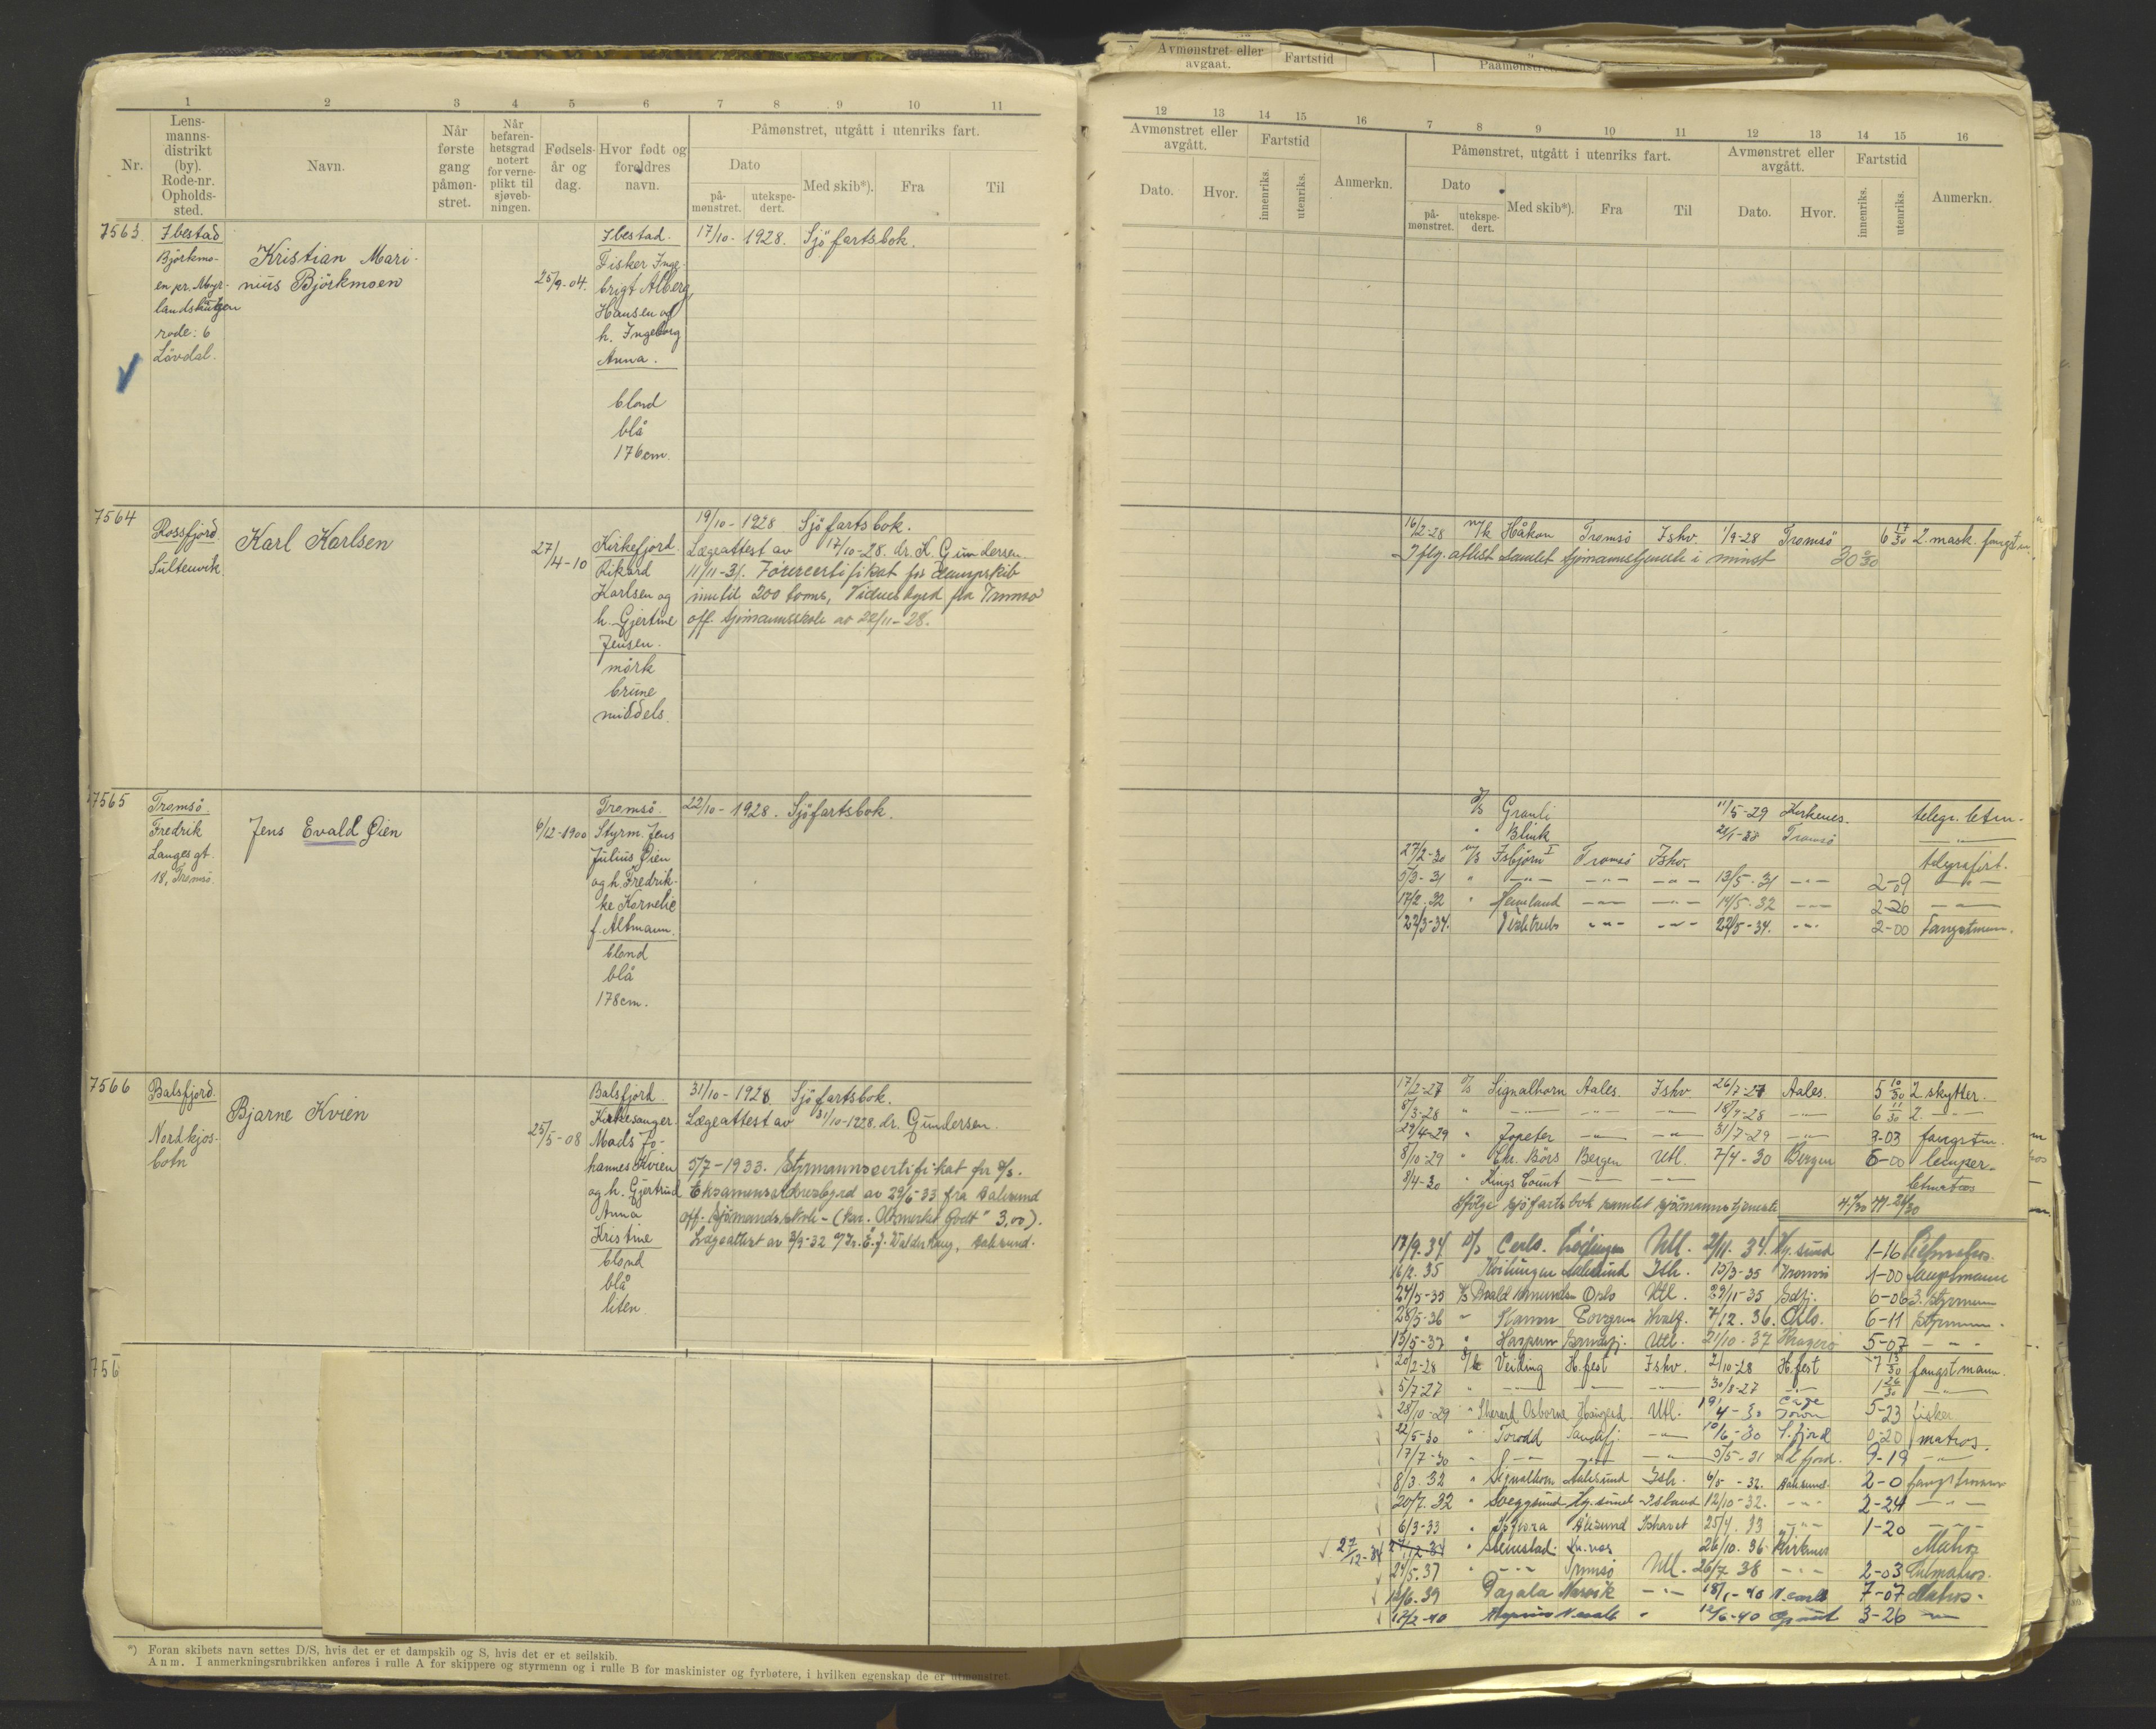 1 2 3 4 5 6 7 8 9 10 11
Nr.
Lens-
manns-
distrikt
(by).
Rode-nr.
Opholds-
sted.
Navn.
Når
første
gang
påmøn-
stret.
Når
befaren-
hetsgrad
notert
for verne-
plikt til
sjøveb-
ningen.
Fødsels-
år og
dag.
Hvor født og
foreldres
navn.
Påmønstret, utgått i utenriks fart.
Dato
på-
mønstret.
utekspe-
dert.
Med skib*).
Fra
Til
7563.
Ibestad
Björkmo-
en pr. Myr-
landshaugen
rode: 6
Lövdal.
Kristian Mari-
nius Björkmoen
25/9-04.
Ibestad.
Fisker Inge-
brigt Alberg
Hansen og
h. Ingeborg
Anna.
blond
blå
176 cm.
17/10- 1928. Sjöfartsbok.
7564
Rossfjord
Sultenvik
Karl Karlsen
27/4-10
Kirkefjord.
Rikard
Karlsen og
h. Gjertine
Jensen.
mörk
brune
middels.
19/10- 1928 Sjöfartsbok.
Lægeattest av 17/10-28. dr. K. Gundersen.
11/11-31. Förercertifikat for dampskib
inntil 200 tonns, Vidnesbyrd fra Tromsö
off. sjömannsskole av 22/11-28.
7565
Tromsö.
Fredrik
Langes gt.
18, Tromsö.
Jens Evald Øien
6/12-1900
Tromsö.
Styrm. Jens
Julius Øien
og h. Fredrik-
ke Kornelie
f. Altmann.
blond
blå
178 cm.
22/10- 1928. Sjöfartsbok.
7566
Balsfjord.
Nordkjos-
botn
Bjarne Kvien
25/5-08
Balsfjord.
Kirkesanger
Mads Jo-
hannes Kvien
og h. Gjertrud
Anna
Kristine
blond
blå
liten
31/10- 1928 Sjöfartsbok.
Lægeattest av 31/10-1928. dr. Gundersen.
5/7-1933. Styrmannscertifikat for
Eksamensvidnesbyrd av 29/6-33 fra Aalesund
off. sjömandsskole - (kar. "Utmerket Godt" 3,00).
Lægeattest av
756
*) Foran skibets navn settes D/S, hvis det er et dampskib og S, hvis det er et seilskib.
Anm. I anmerkningsrubrikken anføres i rulle A for skippere og styrmenn og i rulle B for maskinister og fyrbøtere, i hvilken egenskap de er utmønstret.
Avmønstret eller
avgaat.
Fartstid
12 13 14 15 16
Avmønstret eller
avgått.
Fartstid
Dato.
Hvor.
innenriks.
utenriks.
Anmerkn.
7 8 9 10 11 12 13 14 15 16
Påmønstret, utgått i utenriks fart.
Avmønstret eller
avgått.
Fartstid
Dato
på-
mønstret.
utekspe-
dert.
Med skib*).
Fra
Til
Dato.
Hvor.
innenriks.
utenriks.
Anmerkn.
16/2-28 m/k Håkon Tromsö Ishv. 1/9-28 Tromsö 6 17/30 2. mask. fangstm.
Ifølg. attest samlet sjömannstjeneste i minst
Granli 11/5-29 Kirkenes. telegr. letm.
" Blink Tromsö
27/2-30 Isbjörn I Tromsö Ishv. telegrafist.
5/3-31 " 13/5-31 2-09
17/2-32 " Heimland 14/5-32 2-26
22/3-34. 22/5-34. 2-00 Fangstmann.
17/2-27 Signalhorn Aales. Ishv 26/7-27 Aales. 5 10/30 2 skytter.
8/3-28 " 18/9-28 6 11/30 2
29/4-29 " Jopeter 31/7-29 3-03 fangstm.
8/10-29 " Chr. Börs Bergen Utl. 7/4-30 Bergen 6-00 lemper.
8/4-30 " Kings Count letmatros
Ifölge sjöfartsbok samlet sjömannstjeneste
17/9.34 Utl. 2/11.34. 1-16 Letmatros.
16/2.35 Aalesund Ish. 15/3-35 Tromsö 1-00 fangstmann
24/5-35 Roald Amundsen Oslo Utl. 29/11-35 6-06 3. styrmann
28/5-36 " 7/12.36. Oslo. 6-11 styrmann.
15/5-37 Utl. 21/10-37 Kragerö 5-07
20/2-28 Veiding H.fest Ishv. 2/10-28 H.fest 7 13/30 fangstmann.
5/7-27 " 30/8-27 1 26/30
28/10-29 " Sherard Osborne Haugesd. Utl. 19/4-30 Cape Town 5-23 fisker
22/5-30 " Torodd Sandefj. 10/6-30 S.fjord 0-20 matros.
17/7-30 " 5/5-31 9-19
8/3.32 " Signalhorn Aalesund Ish. 6/5-32. Aalesund. 2-0 fangstmann
20/7.32 " Soeggsund Island 12/10-32. 2-24
6/3-33 " Isflora Ålesund Ishavet 25/4.33 1-20
27/12-34 27/12-34 " Steinstad 26/10.36 Kirkenes Matros
24/5.37 " Tromsö Utl. 26/7 38 2-03 Letmatros.
12/6-39 Pajala Narvik 18/1-40 7-07 Matros.
12/2-40 12/6-40 3-26